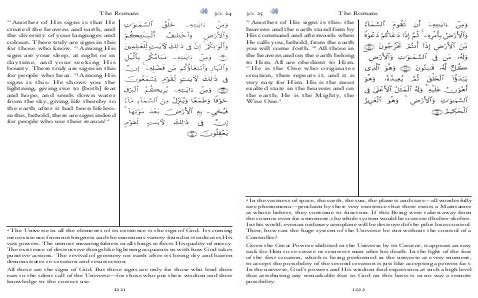 The Romans
30: 24
22 Another of His signs is that He
created the heavens and earth, and
the diversity of your languages and
colours. There truly are signs in this
for those who know. 23 Among His
signs are your sleep, at night or in
daytime, and your seeking His
bounty. There truly are signs in this
for people who hear. 24 Among His
signs is that He shows you the
lightning, giving rise to [both] fear
and hope, and sends down water
from the sky, giving life thereby to
the earth after it had been lifeless-
in this, behold, there are signs indeed
for people who use their reason!a
وَمِنْ ءَايَـٰتِهِۦ خَلْقُ ٱلسَّمَـٰوَٰتِ
وَٱلْأَرْضِ وَٱخْتِلَـٰفُ أَلْسِنَتِكُمْ
وَأَلْوَٰنِكُمْ إِنَّ فِى ذَٰلِكَ لَـَٔايَـٰتٍ لِّلْعَـٰلِمِينَ
وَمِنْ ءَايَـٰتِهِۦ مَنَامُكُم بِٱلَّيْلِ
وَٱلنَّهَارِ وَٱبْتِغَآؤُكُم مِّن فَضْلِهِۦٓ إِنَّ
فِى ذَٰلِكَ لَـَٔايَـٰتٍ لِّقَوْمٍ يَسْمَعُونَ
وَمِنْ ءَايَـٰتِهِۦ يُرِيكُمُ ٱلْبَرْقَ
خَوْفًا وَطَمَعًا وَيُنَزِّلُ مِنَ ٱلسَّمَآءِ مَآءً
فَيُحْىِۦ بِهِ ٱلْأَرْضَ بَعْدَ مَوْتِهَآ
إِنَّ فِى ذَٰلِكَ لَـَٔايَـٰتٍ لِّقَوْمٍ
يَعْقِلُونَ
a The Universe in all the elements of its existence is the sign of God. Its coming
into existence from nothingness and the enormous variety found in it indicates His
vast powers. The utmost meaningfulness in all things reflects His quality of mercy.
The existence of destructive things like lightning acquaints us with how God takes
punitive actions. The revival of greenery on earth after its being dry and barren
demonstrates re-creation and resurrection.
All these are the signs of God. But these signs are only for those who lend their
ears to the silent call of the Universe—for those who put their wisdom and their
knowledge to the correct use.
1221
30: 25
The Romans
25 Another of His signs is this: the
heavens and the earth stand firm by
His command and afterwards when
He calls you, behold, from the earth
you will come forth. 26 All those in
the heavens and on the earth belong
to Him. All are obedient to Him.
27 He is the One who originates
creation, then repeats it, and it is
very easy for Him. His is the most
exalted state in the heavens and on
the earth; He is the Mighty, the
Wise One.a
وَمِنْ ءَايَـٰتِهِۦٓ أَن تَقُومَ ٱلسَّمَآءُ
وَٱلْأَرْضُ بِأَمْرِهِۦ ثُمَّ إِذَا دَعَاكُمْ دَعْوَةً
مِّنَ ٱلْأَرْضِ إِذَآ أَنتُمْ تَخْرُجُونَ
وَلَهُۥ مَن فِى ٱلسَّمَـٰوَٰتِ وَٱلْأَرْضِ
كُلٌّ لَّهُۥ قَـٰنِتُونَ وَهُوَ ٱلَّذِى
يَبْدَؤُا۟ ٱلْخَلْقَ ثُمَّ يُعِيدُهُۥ وَهُوَ
أَهْوَنُ عَلَيْهِ وَلَهُ ٱلْمَثَلُ ٱلْأَعْلَىٰ فِى
ٱلسَّمَـٰوَٰتِ وَٱلْأَرْضِ وَهُوَ ٱلْعَزِيزُ
ٱلْحَكِيمُ
a In the vastness of space, the earth, the sun, the planets and stars—all wonderfully
rare phenomena—proclaim by their very existence that there exists a Maintainer
at whose behest, they continue to function. If this Being were taken away from
the cosmos even for a moment, the whole system would be scattered helter-skelter.
In this world, even an ordinary aeroplane will be destroyed if the pilot loses control.
Then, how can the huge system of the Universe be run without the control of a
Controller?
Given the Great Power exhibited in the Universe by its Creator, it appears an easy
task for Him to re-create or resurrect man after his death. In the light of the feat
of the first creation, which is being performed in the universe at every moment,
to accept the possibility of the second creation is just like accepting a proven fact.
In the universe, God's powers and His wisdom find expression at such a high level
that attributing any remarkable feat to God on this basis is in no way a remote
possibility.
1222